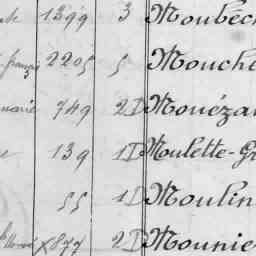 1399 3 Moubech
français 2205 5 Mouche
749 2D Mouéza
139 1D Moulette-G
55 1D Moulin
x877 2D Mounie